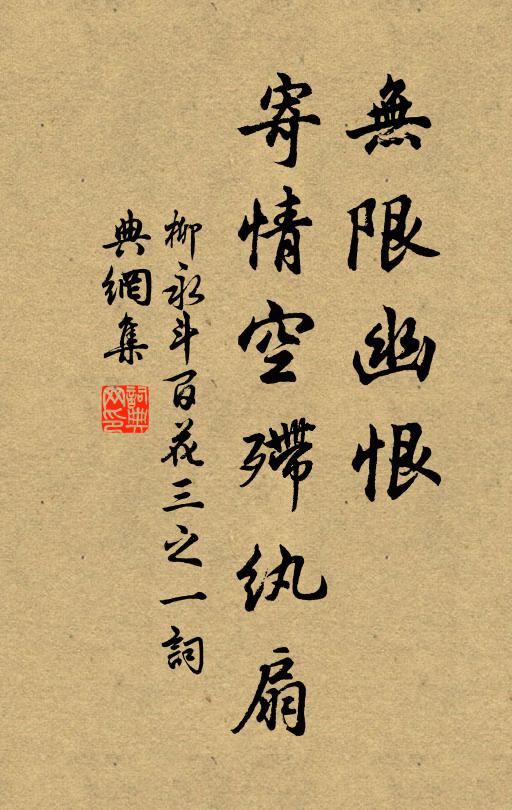 無限幽恨
寄情空殢紈扇
柳永斗百花三之一詞
典網集
詞典
网印